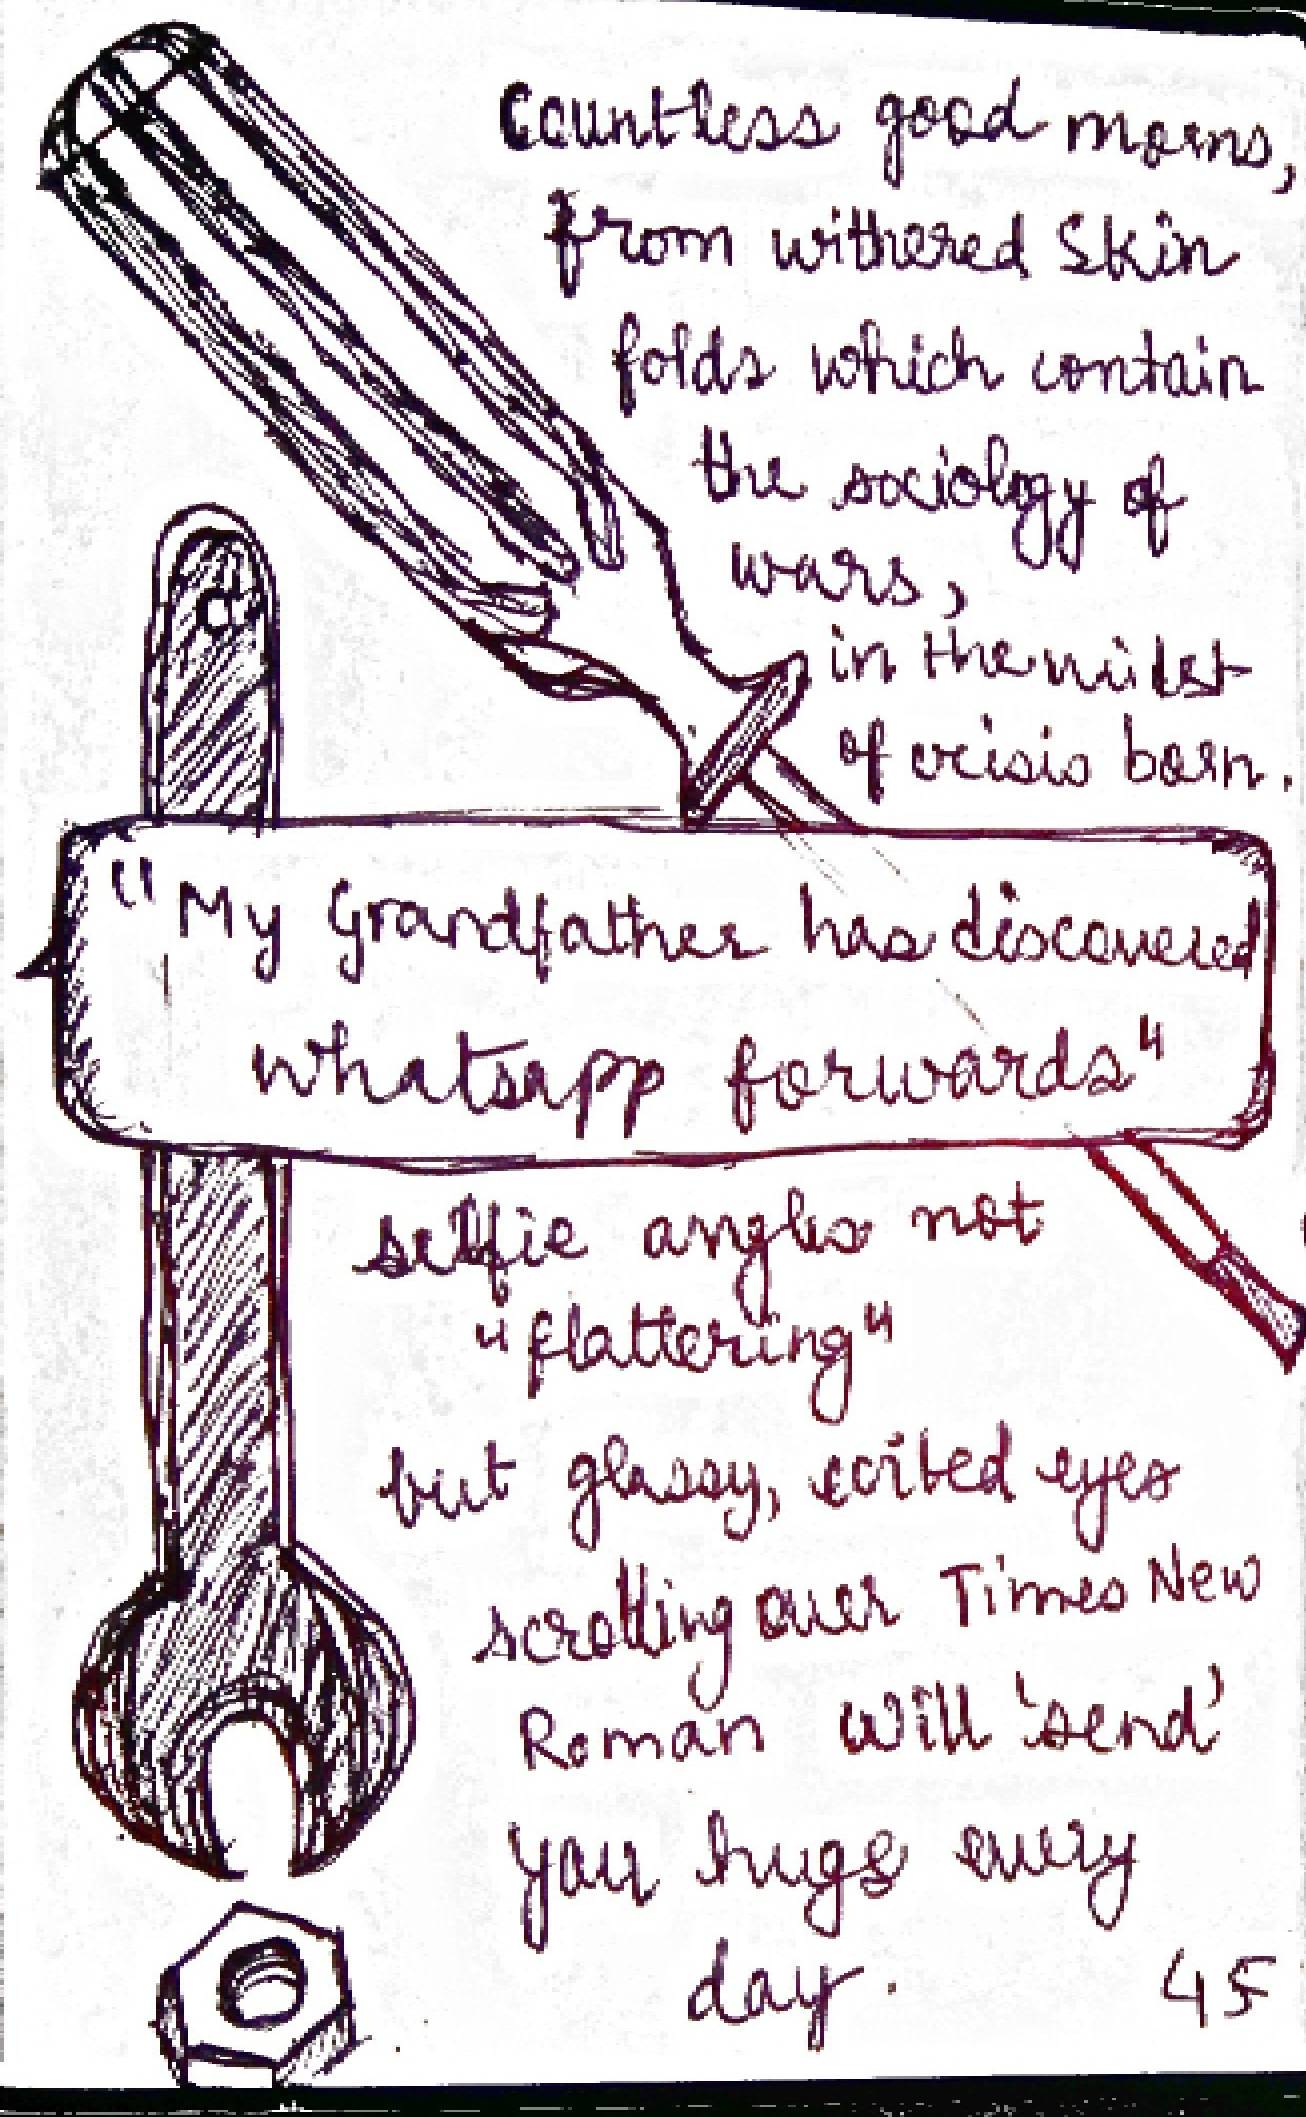 Countless good morns,
from withered Skin
folds which contain
the sociology of
wars,
in the midst
of crisis born.
"My Grandfather has discovered
whatsapp forwards"
selfie angles not
"flattering"
but glassy, eyes
scrolling over Times New
Roman will 'send'
you hugs every
day.
45